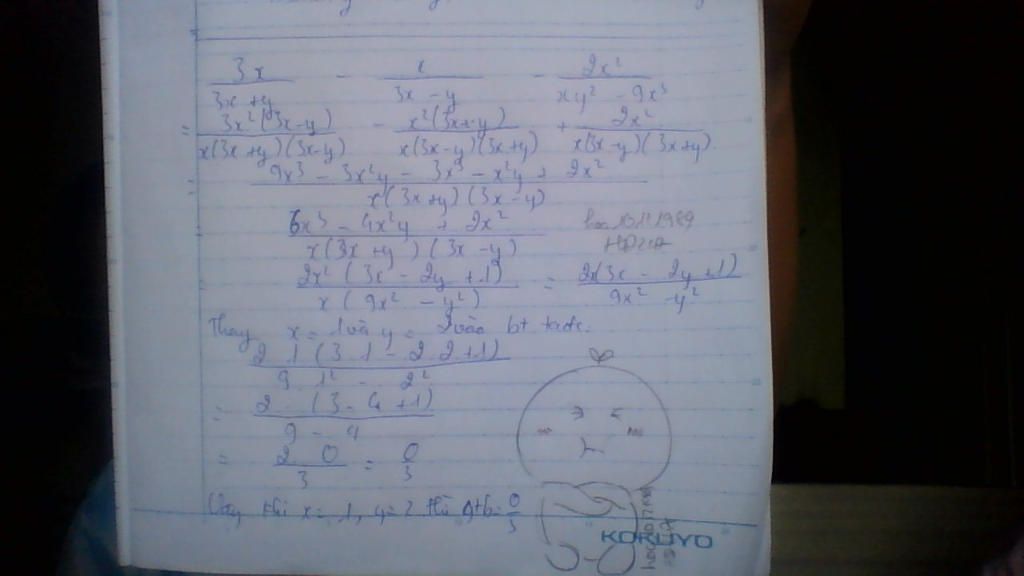 3x/(3x+y) - x/(3x-y) - 2x²/(xy²-9x³)
= 3x²(3x-y)/(x(3x+y)(3x-y)) - x²(3x+y)/(x(3x-y)(3x+y)) + 2x²/(x(3x-y)(3x+y)).
= (9x³ - 3x²y - 3x³ - x²y + 2x²)/(x(3x+y)(3x-y))
(6x³ - 4x²y + 2x²)/(x(3x+y)(3x-y))
2x²(3x - 2y + 1)/(x(9x² - y²)) = 2x(3x - 2y + 1)/(9x² - y²)
Thay x = 1 và y = 2 vào bt
2 1 (3 1 - 2 2 + 1)/(9 1² - 2²)
= 2 (3 - 4 + 1)/(9 - 4)
= 2 0/5 = 0/5
Vậy khi x = 1, y = 2 thì = 0/5
KOKUYO